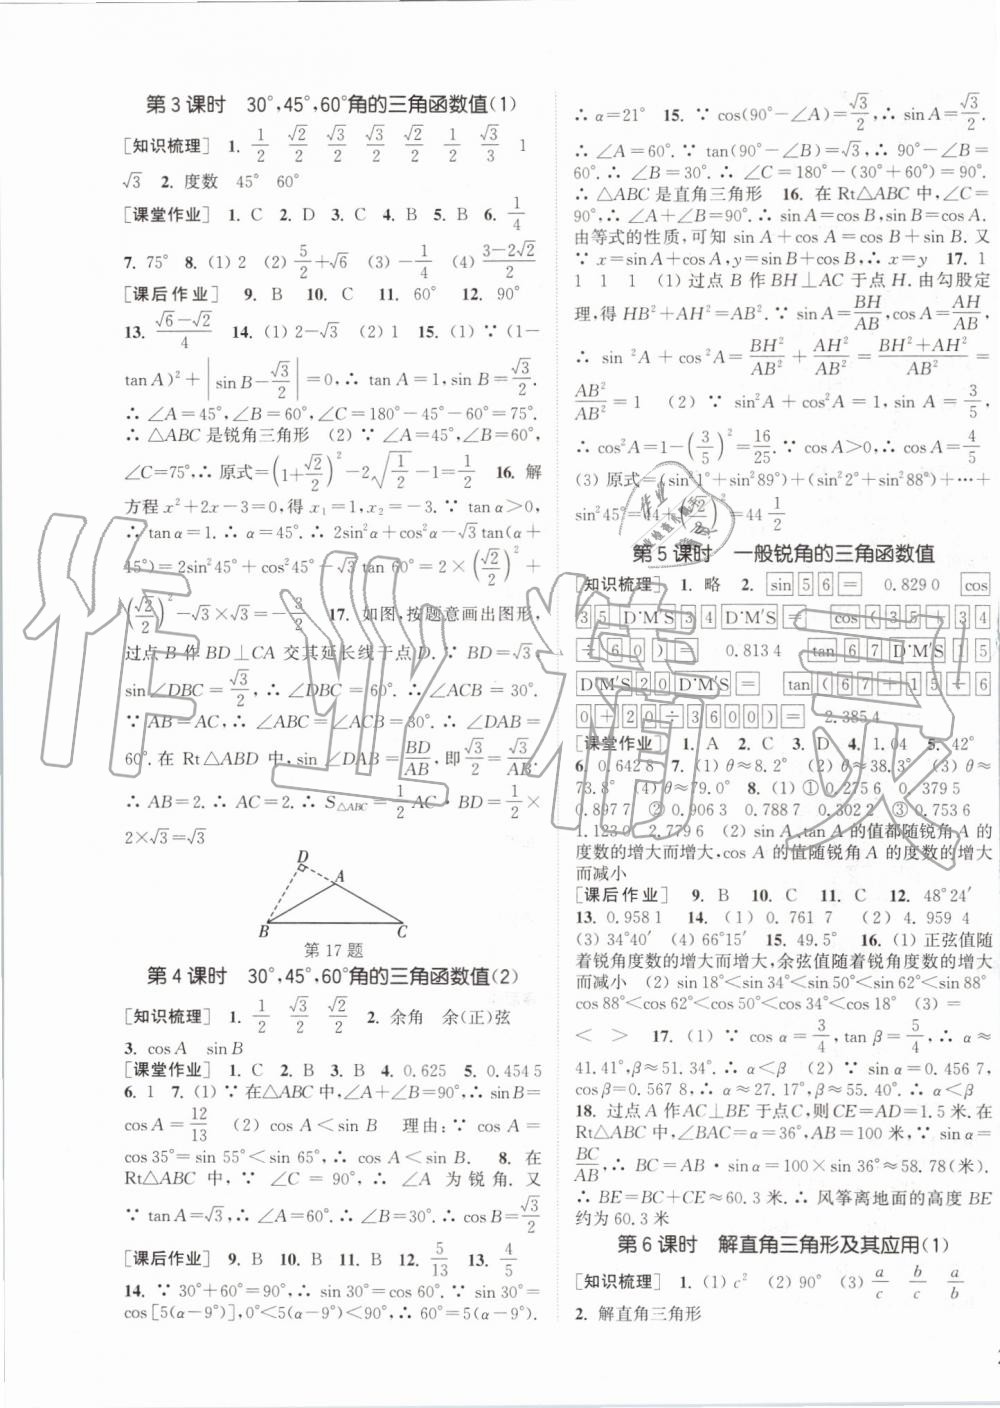 第 3 课时　30°,45°,60°角的三角函数值(1)
[知识梳理] 1. 1/2 √2/2 √3/2 √3/2 √2/2 1/2 √3/3 1
√3 2. 度数 45° 60°
[课堂作业] 1. C 2. D 3. C 4. B 5. B 6. 1/4
7. 75° 8. (1) 2 (2) 5/2+√6 (3) −1/4 (4) (3−2√2)/2
[课后作业] 9. B 10. C 11. 60° 12. 90°
13. (√6−√2)/4 14. (1) 2−√3 (2) 1 15. (1) ∵ (1−
tan A)²+|sin B−√3/2|=0,∴ tan A=1,sin B=√3/2.
∴ ∠A=45°,∠B=60°,∠C=180°−45°−60°=75°.
∴ △ABC 是锐角三角形 (2) ∵ ∠A=45°,∠B=60°,
∠C=75°,∴ 原式=(1+√2/2)²−2√(1/2)−1=1/2 16. 解
方程 x²+2x−3=0,得 x₁=1,x₂=−3. ∵ tan α>0,
∴ tan α=1. ∴ α=45°. ∴ 2sin²α+cos²α−√3 tan(α+
15°)=2sin²45°+cos²45°−√3 tan 60°=2×(√2/2)²+
(√2/2)²−√3×√3=−3/2 17. 如图,按题意画出图形,
过点 B 作 BD⊥CA 交其延长线于点 D. ∵ BD=√3,
sin∠DBC=√3/2,∴ ∠DBC=60°. ∴ ∠ACB=30°.
∵ AB=AC,∴ ∠ABC=∠ACB=30°. ∴ ∠DAB=
60°. 在 Rt△ABD 中,sin∠DAB=BD/AB,即 √3/2=√3/AB,
∴ AB=2. ∴ AC=2. ∴ S△ABC=1/2 AC·BD=1/2×
2×√3=√3
D
A
B
C
第 17 题
第 4 课时　30°,45°,60°角的三角函数值(2)
[知识梳理] 1. 1/2 √3/2 √2/2 2. 余角 余(正)弦
3. cos A sin B
[课堂作业] 1. C 2. B 3. B 4. 0.625 5. 0.454 5
6. 1 7. (1) ∵ 在△ABC 中,∠A+∠B=90°,∴ sin B=
cos A=12/13 (2) cos A<sin B 理由:∵ cos A=
cos 35°=sin 55°<sin 65°,∴ cos A<sin B. 8. 在
Rt△ABC 中,∵ ∠C=90°,∴ ∠A 为锐角. 又
∵ tan A=√3,∴ ∠A=60°. ∴ ∠B=30°. ∴ cos B=√3/2
[课后作业] 9. B 10. B 11. B 12. 5/13 13. 4/5
14. ∵ 30°+60°=90°,∴ sin 30°=cos 60°. ∵ sin 30°=
cos[5(α−9°)],0°<5(α−9°)<90°,∴ 60°=5(α−9°).
∴ α=21° 15. ∵ cos(90°−∠A)=√3/2,∴ sin A=√3/2.
∴ ∠A=60°. ∵ tan(90°−∠B)=√3,∴ 90°−∠B=
60°. ∴ ∠B=30°. ∴ ∠C=180°−(30°+60°)=90°.
∴ △ABC 是直角三角形 16. 在 Rt△ABC 中,∠C=
90°,∴ ∠A+∠B=90°. ∴ sin A=cos B,sin B=cos A.
由等式的性质,可知 sin A+cos A=cos B+sin B. 又
∵ x=sin A+cos A,y=sin B+cos B,∴ x=y 17. 1
1 1 1 (1) 过点 B 作 BH⊥AC 于点 H. 由勾股定
理,得 HB²+AH²=AB². ∵ sin A=BH/AB,cos A=AH/AB,
∴ sin²A+cos²A=BH²/AB²+AH²/AB²=(BH²+AH²)/AB²=
AB²/AB²=1 (2) ∵ sin²A+cos²A=1,sin A=3/5,
∴ cos²A=1−(3/5)²=16/25. ∵ cos A>0,∴ cos A=4/5
(3) 原式=(sin²1°+sin²89°)+(sin²2°+sin²88°)+⋯+
sin²45°=44+(√2/2)²=44 1/2
第 5 课时　一般锐角的三角函数值
[知识梳理] 1. 略 2. sin 5 6 = 0.829 0 cos
3 5 D°M′S 3 4 D°M′S = cos ( 3 5 + 3 4
÷ 6 0 ) = 0.813 4 tan 6 7 D°M′S 1 5
D°M′S 2 0 D°M′S = tan ( 6 7 + 1 5 ÷ 6
0 + 2 0 ÷ 3 6 0 0 ) = 2.385 4
[课堂作业] 1. A 2. C 3. D 4. 1.04 5. 42°
6. 0.642 8 7. (1) θ≈8.2° (2) θ≈38.3° (3) θ≈
73.8° (4) θ≈79.0° 8. (1) ① 0.275 6 0.379 5
0.897 7 ② 0.906 3 0.788 7 0.302 2 ③ 0.753 6
1.123 0 2.779 6 (2) sin A,tan A 的值都随锐角 A 的
度数的增大而增大,cos A 的值随锐角 A 的度数的增大
而减小
[课后作业] 9. B 10. C 11. C 12. 48°24′
13. 0.958 1 14. (1) 0.761 7 (2) 4.959 4
(3) 34°40′ (4) 66°15′ 15. 49.5° 16. (1) 正弦值随
着锐角度数的增大而增大,余弦值随着锐角度数的增大
而减小 (2) sin 18°<sin 34°<sin 50°<sin 62°<sin 88°
cos 88°<cos 62°<cos 50°<cos 34°<cos 18° (3) =
< > 17. (1) ∵ cos α=3/4,tan β=5/4,∴ α≈
41.41°,β≈51.34°. ∴ α<β (2) ∵ sin α=0.456 7,
cos β=0.567 8,∴ α≈27.17°,β≈55.40°. ∴ α<β
18. 过点 A 作 AC⊥BE 于点 C,则 CE=AD=1.5 米. 在
Rt△ABC 中,∠BAC=α=36°,AB=100 米,∵ sin α=
BC/AB,∴ BC=AB·sin α=100×sin 36°≈58.78(米).
∴ BE=BC+CE≈60.3 米. ∴ 风筝离地面的高度 BE
约为 60.3 米
第 6 课时　解直角三角形及其应用(1)
[知识梳理] 1. (1) c² (2) 90° (3) a/c b/c a/b
2. 解直角三角形
作业精灵